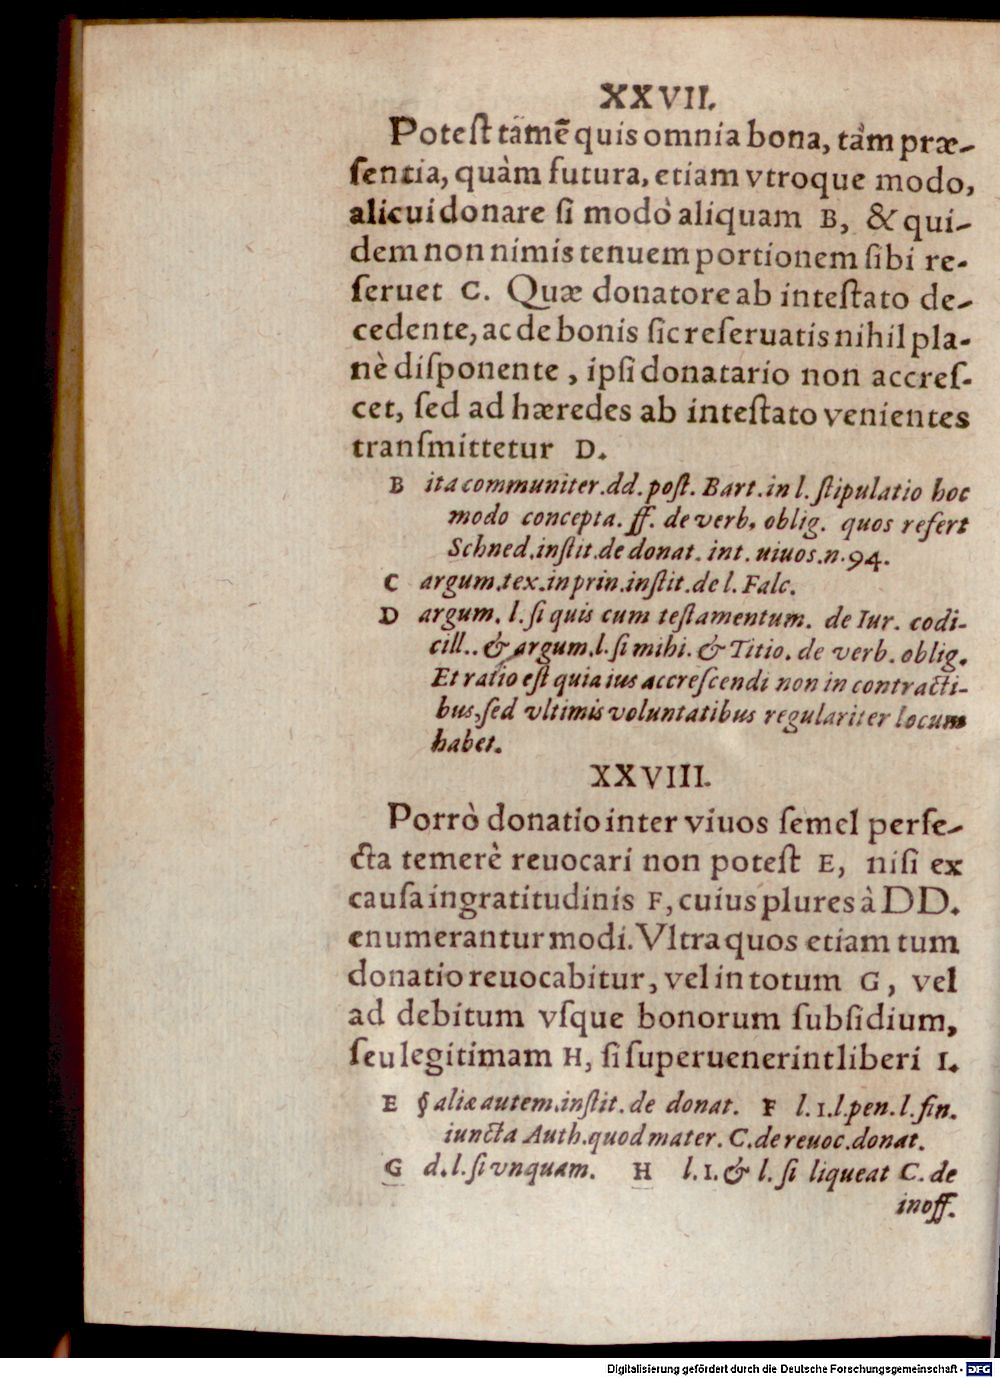 XXVII.
Poteſt tamē quis omnia bona, tàm præ-
ſentia, quàm futura, etiam vtroque modo,
alicui donare ſi modò aliquam B, & qui-
dem non nimis tenuem portionem ſibi re-
ſeruet C. Quæ donatore ab inteſtato de-
cedente, ac de bonis ſic reſeruatis nihil pla-
nè diſponente, ipſi donatario non accreſ-
cet, ſed ad hæredes ab inteſtato venientes
tranſmittetur D.
B ita communiter. dd. poſt. Bart. in l. ſtipulatio hoc
modo concepta. ff. de verb, oblig. quos refert
Schned. inſtit. de donat. int. uiuos. n. 94.
C argum. tex. in prin. inſtit. de l. Falc.
D argum. l. ſi quis cum teſtamentum. de Iur. codi-
cill.. & argum. l. ſi mihi. & Titio. de verb. oblig.
Et ratio eſt quia ius accreſcendi non in contracti-
bus, ſed vltimis voluntatibus regulariter locum
habet.
XXVIII.
Porrò donatio inter viuos ſemel perfe-
cta temerè reuocari non poteſt E, niſi ex
cauſa ingratitudinis F, cuius plures à DD.
enumerantur modi. Vltra quos etiam tum
donatio reuocabitur, vel in totum G, vel
ad debitum vſque bonorum ſubſidium,
ſeu legitimam H, ſi ſuperuenerint liberi I.
E § aliæ autem. inſtit. de donat. F l. 1. l. pen. l. fin.
iuncta Auth. quod mater. C. de reuoc. donat.
G d. l. ſi vnquam. H l. 1. & l. ſi liqueat C. de
inoff.
Digitalisierung gefördert durch die Deutsche Forschungsgemeinschaft - DFG